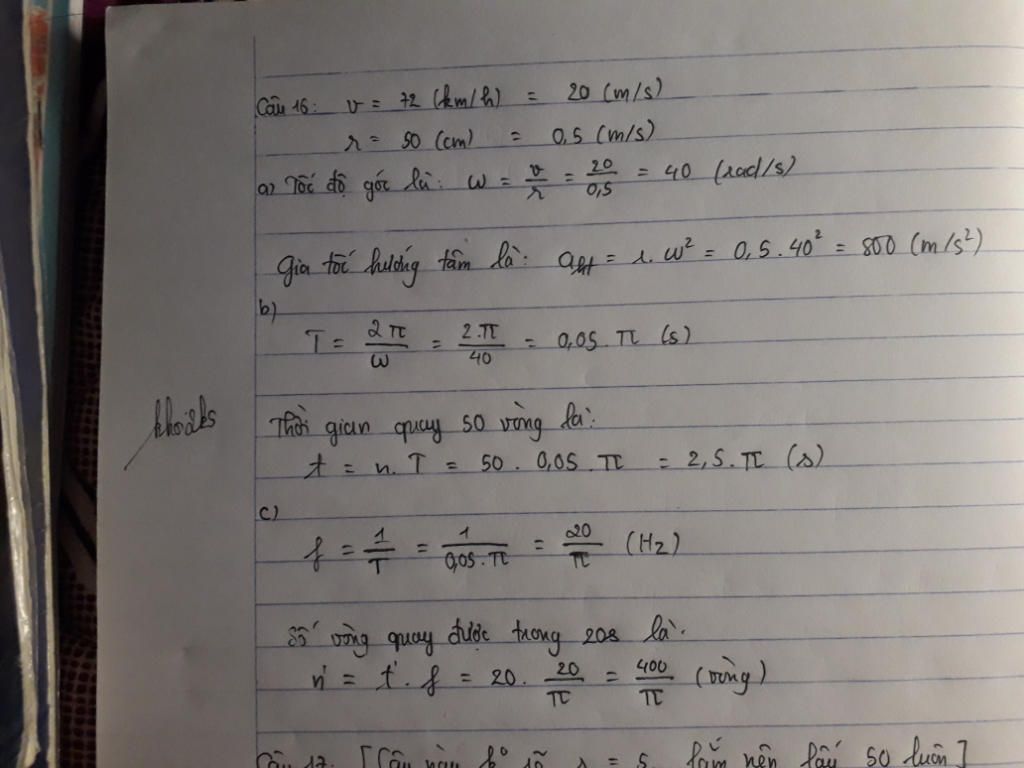 Câu 16: v = 72 (km/h) = 20 (m/s)
r = 50 (cm) = 0,5 (m/s)
a) Tốc độ góc là: ω = v/r = 20/0,5 = 40 (rad/s)
Gia tốc hướng tâm là: aht = r. ω² = 0,5. 40² = 800 (m/s²)
b)
T = 2π/ω = 2.π/40 = 0,05. π (s)
Thời gian quay 50 vòng là:
t = n. T = 50. 0,05. π = 2,5. π (s)
c)
f = 1/T = 1/0,05.π = 20/π (Hz)
Số vòng quay được trong 20s là:
n' = t'. f = 20. 20/π = 400/π (vòng)
Câu 17: [Câu này k° rõ r = 5 lắm nên lấy 50 luôn]